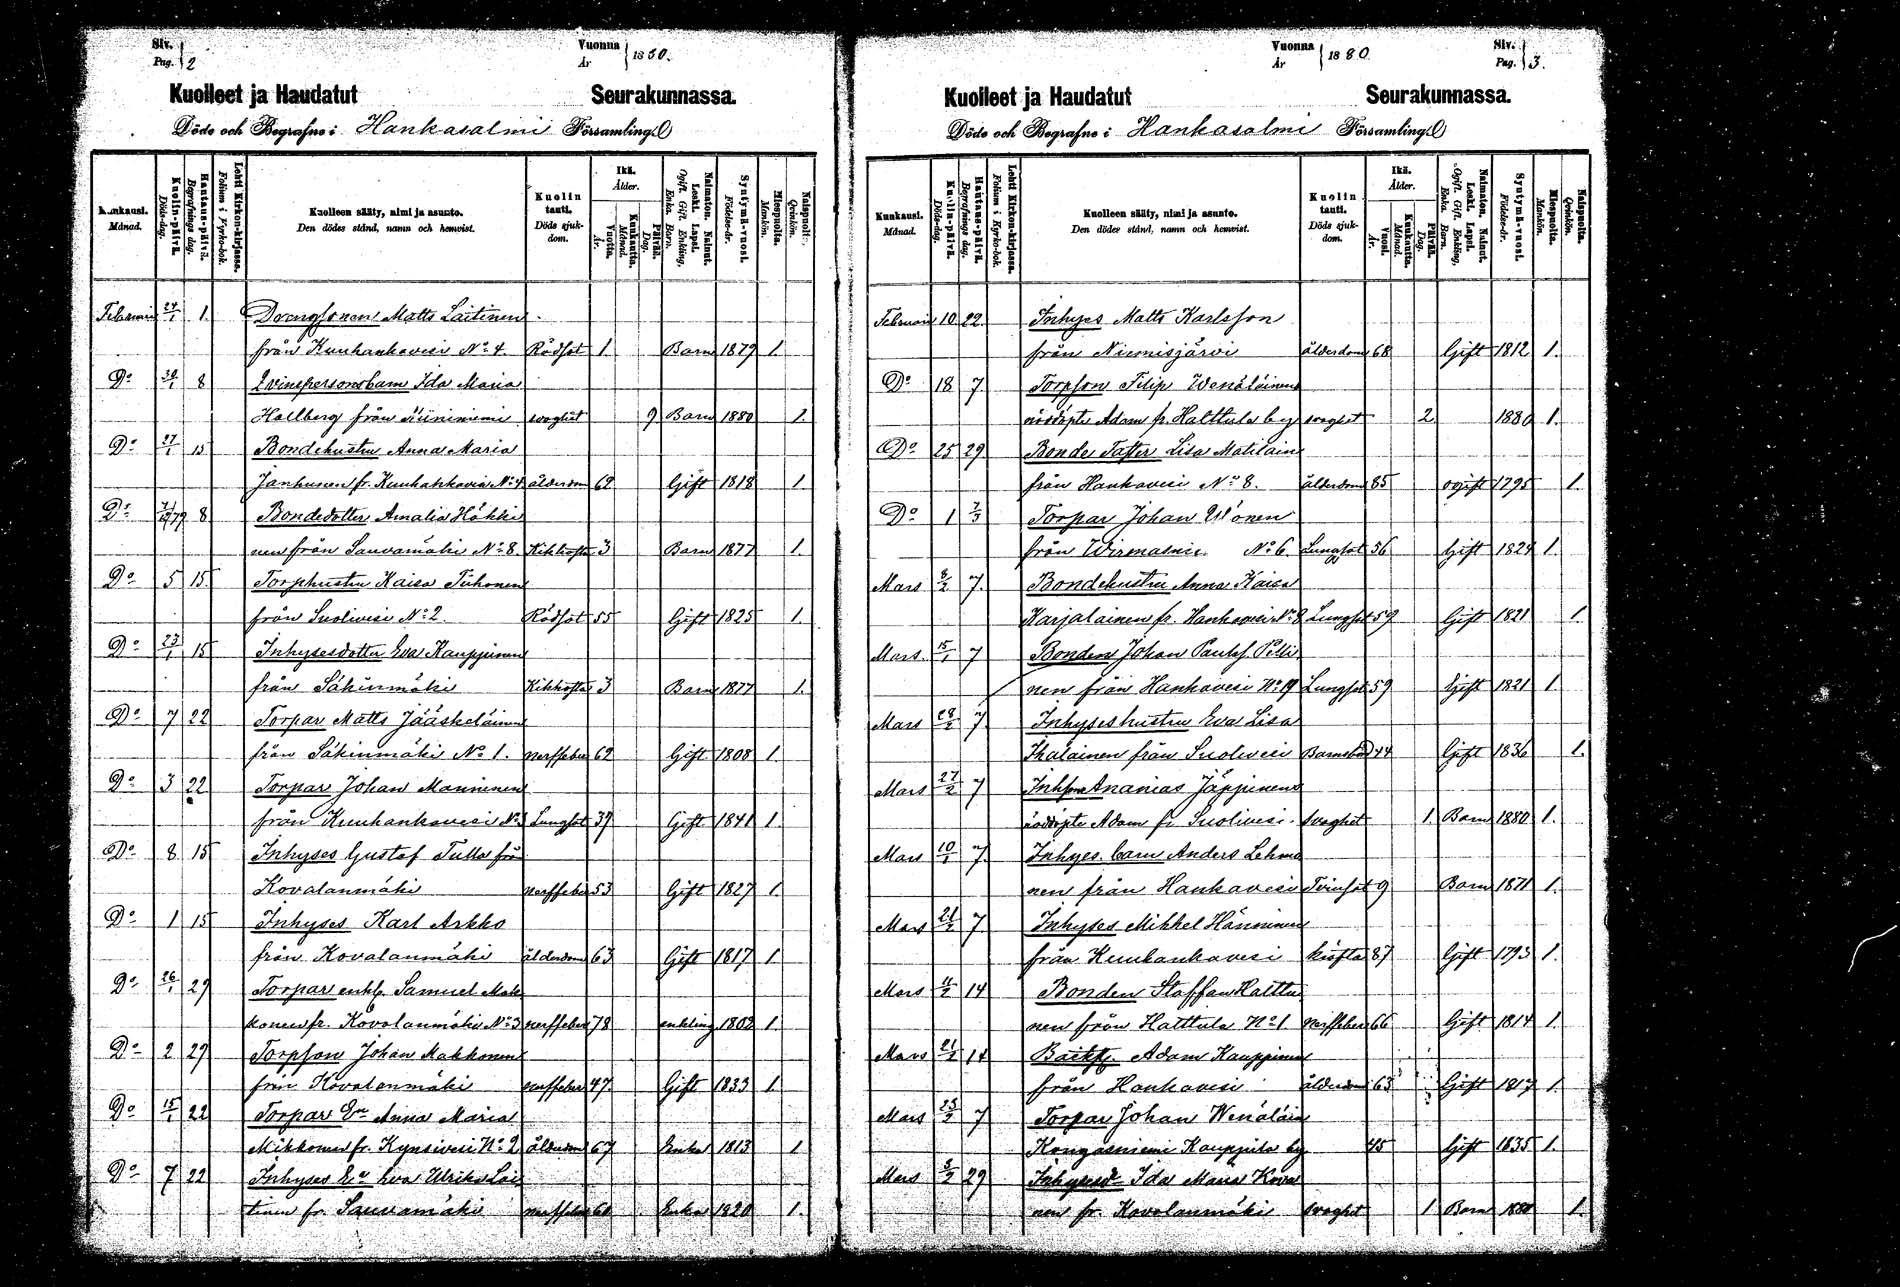 Siv.
Pag. 2
Vuonna
År 1880.
Kuolleet ja Haudatut Seurakunnassa.
Döde och Begrafne i Hankasalmi Församling
Kuukausi. Månad.
Kuolin-päivä. Döds-dag.
Hautaus-päivä. Begrafnings dag.
Lehti Kirkon-kirjassa. Folium i Kyrko-bok.
Kuolleen sääty, nimi ja asunto.
Den dödes stånd, namn och hemvist.
Kuolin tauti. Döds sjukdom.
Ikä. Ålder.
Vuotta. År.
Kuukautta. Månad.
Päivää. Dag.
Naimaton. Nainut. Leski. Lapsi.
Ogift. Gift. Enkling. Enka. Barn.
Syntymä-vuosi. Födelse-år.
Miespuolta. Mankön.
Naispuolta. Qvinkön.
Februari 24/1 1. Drengsonen Matts Laitinen
från Kuuhankavesi No 4. Rödsot 1 Barn 1879 1.
Do 30/1 8 Qvinspersonsbarn Ida Maria
Hallberg från Niininiemi svaghet 9 Barn 1880 1.
Do 27/1 15 Bondehustru Anna Maria
Janhunen fr. Kuuhankavesi No 4 ålderdom 62 Gift 1818 1
Do 8 Bondedotter Amalia Häkki
nen från Sauvamäki No 8. Kikhosta 3 Barn 1877 1.
Do 5 15 Torphustru Kaisa Tiihonen
från Suolivesi No 2. Rödsot 55 Gift 1825 1.
Do 23/1 15 Inhysesdotter Eva Kauppinen
från Säkinmäki Kikhosta 3 Barn 1877 1.
Do 7 22 Torpar Matts Jääskeläinen
från Säkinmäki No 1. nerffeber 62 Gift 1808 1
Do 3 22 Torpar Johan Manninen
från Kuuhankavesi No 3 Lungsot 39 Gift 1841 1
Do 8 15 Inhyses Gustaf Tulla från
Kovalanmäki nerffeber 53 Gift 1827 1.
Do 1 15 Inhyses Karl Arkko
från Kovalanmäki ålderdom 63 Gift 1817 1
Do 26/1 29 Torpar enkl. Samuel Mak
konen fr. Kovalanmäki No 3 nerffeber 78 enkling 1802 1
Do 2 29 Torpson Johan Makkonen
från Kovalanmäki nerffeber 47 Gift 1833 1
Do 15/1 22 Torpar Ea Anna Maria
Mikkonen fr. Kynsivesi No 2 ålderdom 67 Enka 1813 1
Do 7 22 Inhyses Ea Eva Ulrika Lai
tinen fr. Sauvamäki nerffeber 60 Enka 1820 1.
Vuonna
År 1880
Siv.
Pag. 3.
Kuolleet ja Haudatut Seurakunnassa.
Döde och Begrafne i Hankasalmi Församling
Kuukausi. Månad.
Kuolin-päivä. Döds-dag.
Hautaus-päivä. Begrafnings dag.
Lehti Kirkon-kirjassa. Folium i Kyrko-bok.
Kuolleen sääty, nimi ja asunto.
Den dödes stånd, namn och hemvist.
Kuolin tauti. Döds sjukdom.
Ikä. Ålder.
Vuosi. År.
Kuukautta. Månad.
Päivää. Dag.
Naimaton. Nainut. Leski. Lapsi.
Ogift. Gift. Enkling. Enka. Barn.
Syntymä-vuosi. Födelse-år.
Miespuolta. Mankön.
Naispuolta. Qvinkön.
Februari 10 22. Inhyses Matts Karlsson
från Niemisjärvi ålderdom 68 Gift 1812 1.
Do 18 7 Torpson Filip Wenäläinens
nöddöpte Adam fr. Halttula by svaghet 2 1880 1.
Do 25 29 Bonde Lisa Matilain
från Hankavesi No 8. ålderdom 85 ogift 1795 1.
Do 1 7/3 Torpar Johan
från No 6. Lungsot 56 Gift 1824 1.
Mars 8/2 7. Bondehustru Anna Kaisa
Karjalainen fr. Hankavesi No 8 Lungsot 59 Gift 1821 1.
Mars 15/1 7 Bonden Johan Paulsf. Pelli
nen från Hankavesi No 19 Lungsot 59 Gift 1821 1.
Mars 28/2 7. Inhyseshustru Eva Lisa
Ikäläinen från Suolivesi Barnsbörd 44 Gift 1836 1.
Mars 27/2 7 Ananias Jäppinens
nöddöpte Adam fr Suolivesi. Svaghet 1. Barn 1880 1.
Mars 10/1 7. Inhyses barn Anders Lehmo
nen från Hankavesi Tvinsot 9 Barn 1871 1.
Mars 21/2 7 Inhyses Mikkel Hänninen
från Kuuhankavesi 87 Gift 1793 1.
Mars 11/2 14 Bonden Staffan Halttu
nen från Halttula No 1 Nerffeber 66 Gift 1814 1.
Mars 21/2 14 Adam Kauppinen
från Hankavesi ålderdom 63 Gift 1817 1.
Mars 25/2 7 Torpar Johan Wenäläin
Kangasniemi Kauppila by 45 Gift 1835 1.
Mars 3/2 29 Ida Maria Kova
nen fr. Kovalanmäki svaghet 1 Barn 1880 1.